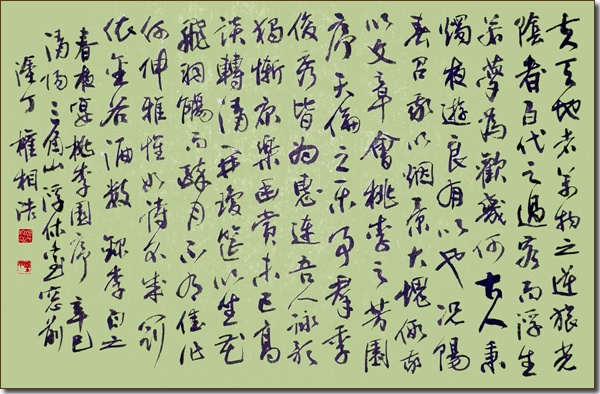 夫天地者萬物之逆旅光
陰者百代之過客而浮生
若夢為歡幾何古人秉
燭夜遊良有以也況陽
春召我以烟景大塊假我
以文章會桃李之芳園
序天倫之樂事群季
俊秀皆為惠連吾人詠歌
獨慚康樂幽賞未已高
談轉清開瓊筵以坐花
飛羽觴而醉月不有佳作
何伸雅懷如詩不成罰
依金谷酒數 錄李白之
春夜宴桃李園序 辛巳
三角山浮休室窓前
塗丁 權相浩